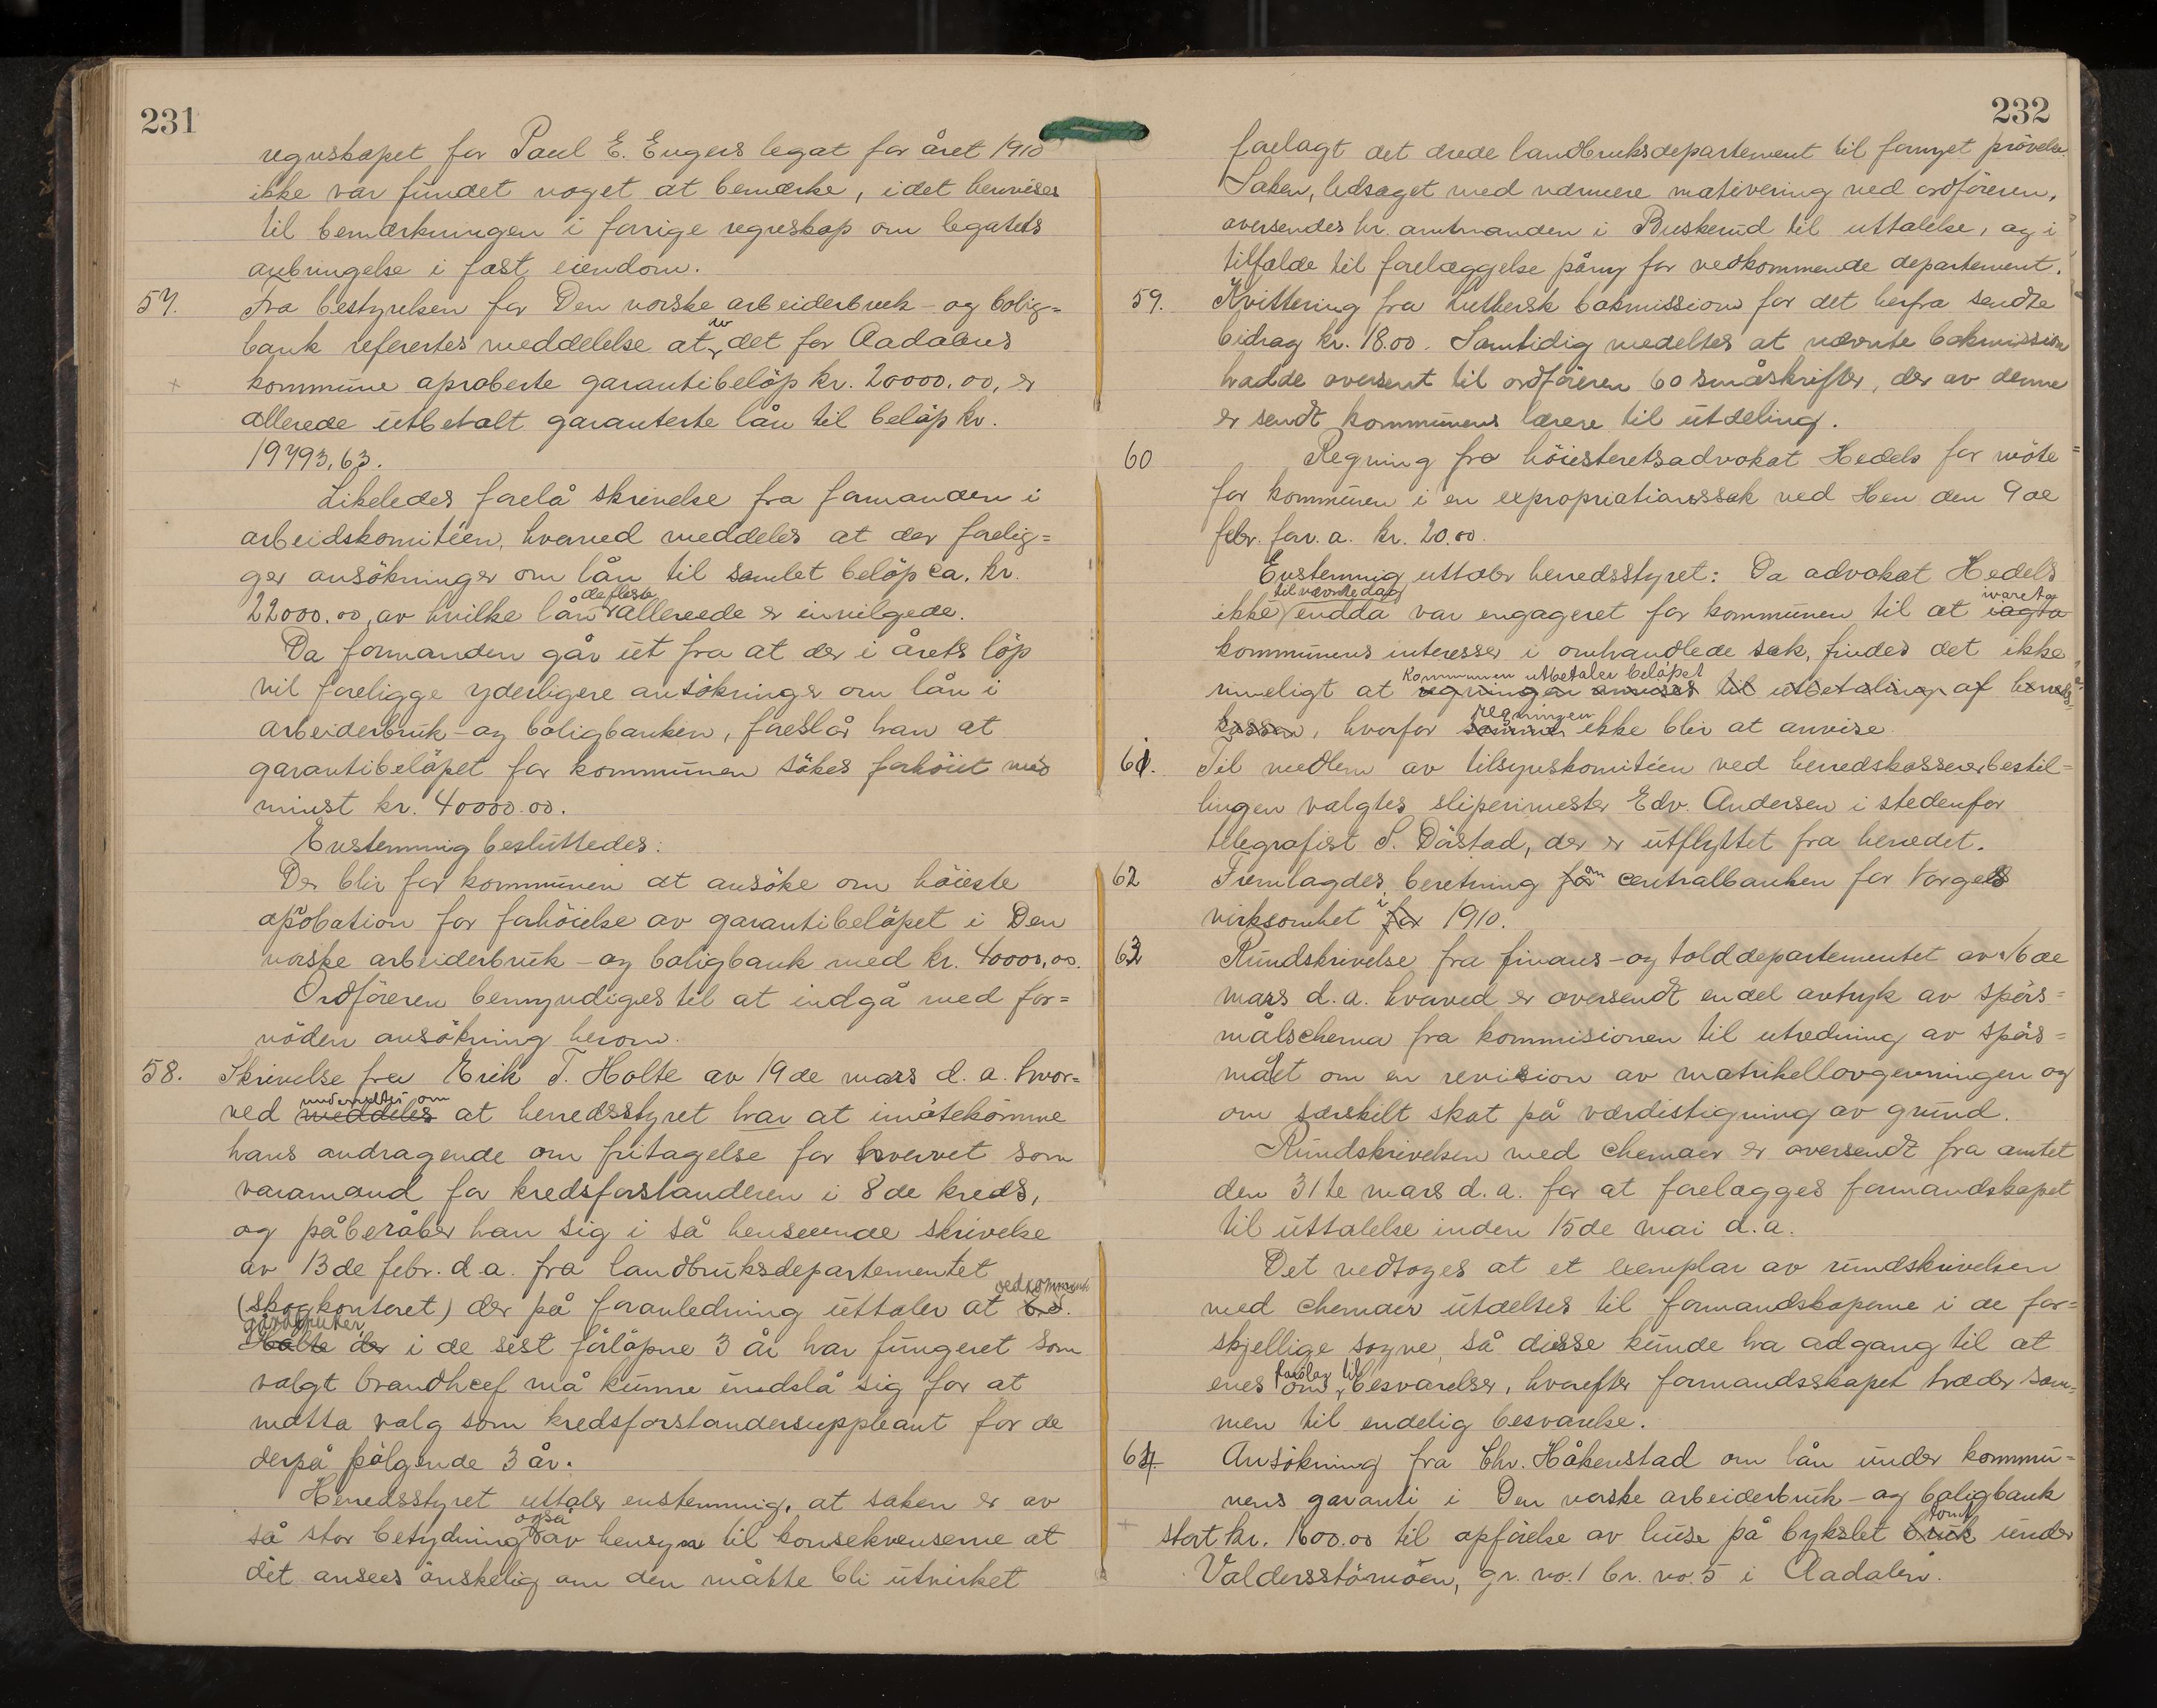 231
regnskapet for Paul E. Engers legat for året 1910
ikke var fundet noget at bemærke, idet henvises
til bemærkningen i forrige regnskap om legatets
anbringelse i fast eiendom.
57. Fra bestyrelsen for Den norske arbeiderbruk- og bolig=
bank refertes meddelelse at av det for Aadalens
kommune aproberte garantibelöp kr. 20000.00, er
allerede utbetalt garanterte lån til belöp kr.
19793,63.
Likeledes forelå skrivelse fra formanden i
arbeidskomitéen, hvorved meddeles at der forelig=
ger ansökninger om lån til samlet belöp ca. kr.
22000.00, av hvilke lån de fleste allereede er invilgede.
Da formanden går ut fra at der i årets löp
vil foreligge yderligere ansökninger om lån i
arbeiderbruk- og boligbanken, foreslår han at
garantibelöpet for kommunen sökes forhöiet med
minst kr. 40000.00.
Enstemmig besluttedes:
Der blir for kommunen at ansöke om höieste
aprobation for forhöielse av garantibelöpet i Den
norske arbeiderbruk- og boligbank med kr. 40000,00.
Ordföreren bemyndiges til at indgå med for=
nöden ansökning herom.
58. Skrivelse fra Erik T. Holte av 19de mars d. a. hvor=
underrettes om
ved meddeles at herredsstyret har at imötekomme
hans andragende om fritagelse for hvervet som
varamand for kredsforstanderen i 8de kreds,
og påberåber han sig i så henseende skrivelse
av 13de febr. d.a. fra landbruksdepartementet
vedkommende
(skogkontoret) der på foranledning uttaler at
gårdbruker
Holte der i de sist forlöpne 3 år har fungeret som
valgt brandhcef må kunne undslå sig for at
motta valg som kredsforstandersuppleant for de
derpå fölgende 3 år.
Herredsstyret uttaler enstemmig, at saken er av
så stor betydning også av hensyn til konsekvenserne at
det ansees önskelig om den måtte bli utvirket
232
forelagt det ærede landbruksdepartement til fornyet prövelse.
Saken, ledsaget med nærmere motivering ved ordföreren,
oversendes hr. amtmanden i Buskerud til uttalelse, og i
tilfælde til forelæggelse påny for vedkommende departement.
59. Kvittering fra luthersk bokmission for det herfra sendte
bidrag kr. 18.00. Samtidig medeltes at nævnte bokmission
hadde oversent til ordföreren 60 småskrifter, der av denne
er sendt kommunens lærere til utdeling.
60 Regning fra höiesteretsadvokat Hedels for möte
for kommunen i en expropriationssak ved Hen den 9de
febr. forr. a. kr. 20.00.
Enstemmig uttaler herredsstyret: Da advokat Hedels
til nævnte dag ivareta
ikke endda var engageret for kommunen til at iagta
kommunens interesser i omhandlede sak, findes det ikke
Kommunen utbetaler belöpet
rimeligt at regningen anvises til utbetaling af herreds=
regningen
kassen, hvorfor samme ikke blir at anvise.
61. Til medlem av tilsynskomitéen ved herredskassererbestil=
lingen valgtes sliperimester Edv. Andersen i stedenfor
telegrafist S. Dåstad, der er utflyttet fra herredet.
62 Fremlagdes beretning for om centralbanken for Norges
virksomhet for i 1910.
63 Rundskrivelse fra finans- og tolddepartementet av 16de
mars d.a. hvorved er oversendt endel avtryk av spörs=
målschema fra kommisionen til utredning av spörs=
målet om en revision av matrikellovgevningen og
om særskilt skat på værdistigning av grund.
Rundskrivelsen med chemaer er oversendt fra amtet
den 31te mars d.a. for at forelægges formandskapet
til uttalelse inden 15de mai d.a.
Det vedtoges at et exemplar av rundskrivelsen
med chemaer utdeltes til formandskaperne i de for=
skjellige sogne, så disse kunde ha adgang til at
forslag til
enes om besvarelser, hvorefter formandsskapet træder sam=
men til endelig besvarelse.
64 Ansökning fra Chr. Håkenstad om lån under kommu=
nens garanti i Den norske arbeiderbruk- og boligbank
tomt
stort kr. 1600.00 til opförelse av huse på bykslet bruk under
Valdersstömöen, gr. no. 1 br. no. 5 i Aadalen.